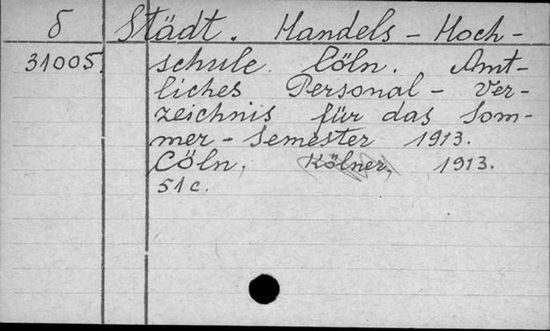 δ Städt. Handels-Hoch-
31005. schule Cöln. Amt-
liches Personal-Ver-
zeichnis für das Som-
mer-Semester 1913.
Cöln, Kölner, 1913.
51c.